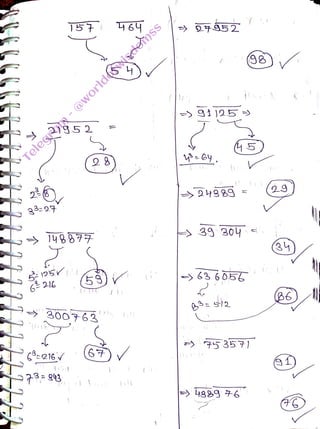 157 464
54
⇒ 21952 =
28
2³=8
3³=27
→ 148877
5³=125
6³=216
53
→ 300763
6³=216
67
7³=343
⇒ 27952
98
⇒ 91125 ⇒
4³=64
45
⇒ 24389 =
29
⇒ 39 304 =
34
⇒ 636056
8³=512
86
⇒ 753571
91
⇒ 438976
76
Telegram - @worldofwisdomss